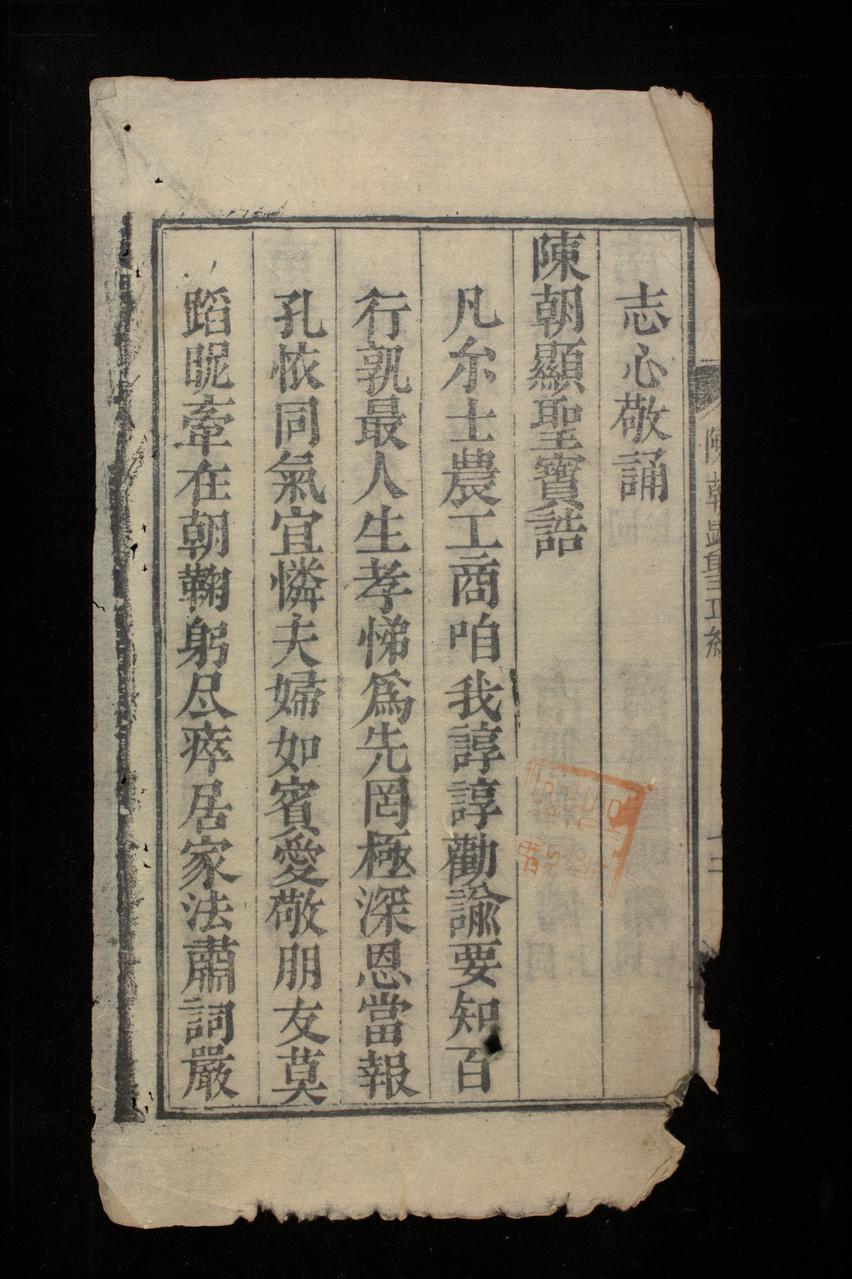 志心敬誦
陳朝顯聖寳誥
凡尒士農工商咱我諄諄勸諭要知百
行孰最人生孝悌爲先罔極深恩當報
孔㤅同氣宜憐夫婦如賓愛敬朋友莫
蹈昵牽在朝鞠躬尽瘁居家法肅詞嚴